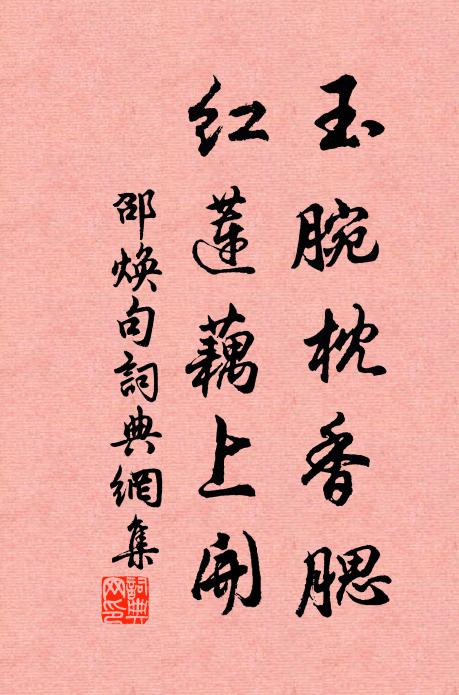 玉腕枕香腮
红莲藕上開
邵焕句詞典網集
詞典网印